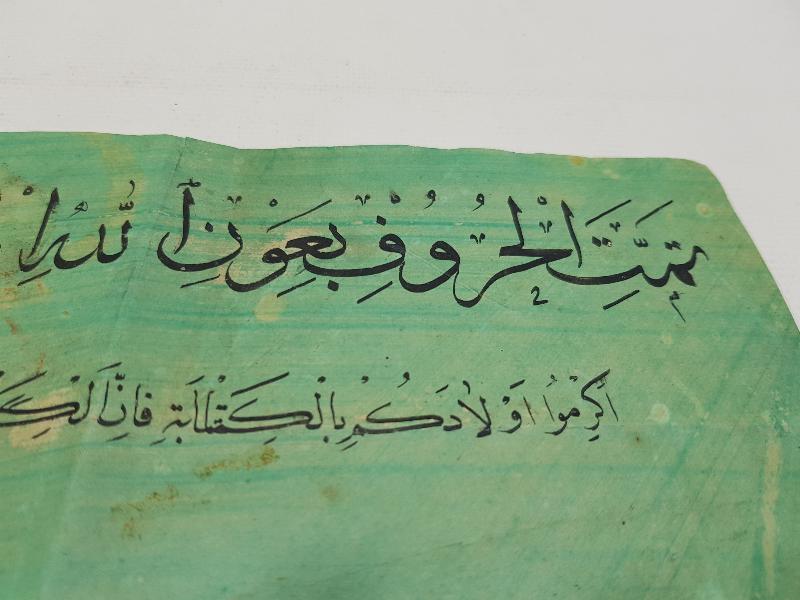 تمت الحروف بعون
اكرموا اولادكم بالكتابة فان الكـ